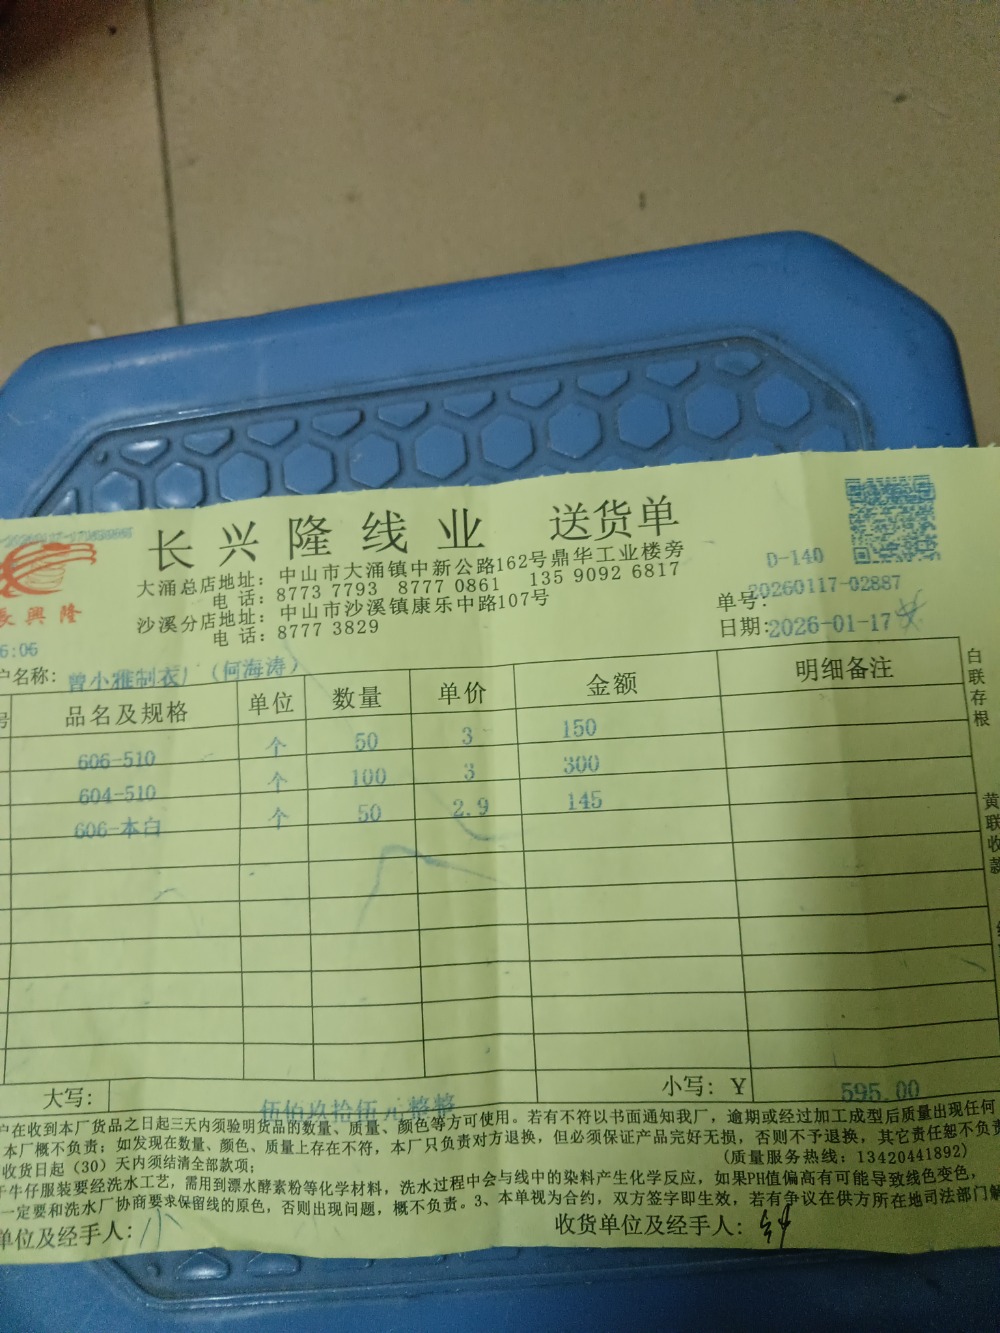 长兴隆线业 送货单
大涌总店地址：中山市大涌镇中新公路162号鼎华工业楼旁
电 话：8773 7793 8777 0861 135 9092 6817
沙溪分店地址：中山市沙溪镇康乐中路107号
电 话：8777 3829
長興隆
D-140
单号：20260117-02887
日期：2026-01-17
6:06
户名称：曾小雅制衣厂（何海涛）
号 品名及规格 单位 数量 单价 金额 明细备注
606-510 个 50 3 150
604-510 个 100 3 300
606-本白 个 50 2.9 145
白联存根
黄联收款
大写：伍佰玖拾伍元整整 小写：Y 595.00
户在收到本厂货品之日起三天内须验明货品的数量、质量、颜色等方可使用。若有不符以书面通知我厂，逾期或经过加工成型后质量出现任何
本厂概不负责；如发现在数量、颜色、质量上存在不符，本厂只负责对方退换，但必须保证产品完好无损，否则不予退换，其它责任恕不负责
收货日起（30）天内须结清全部款项； （质量服务热线：13420441892）
牛仔服装要经洗水工艺，需用到漂水酵素粉等化学材料，洗水过程中会与线中的染料产生化学反应，如果PH值偏高有可能导致线色变色，
一定要和洗水厂协商要求保留线的原色，否则出现问题，概不负责。3、本单视为合约，双方签字即生效，若有争议在供方所在地司法部门解
单位及经手人： 收货单位及经手人：